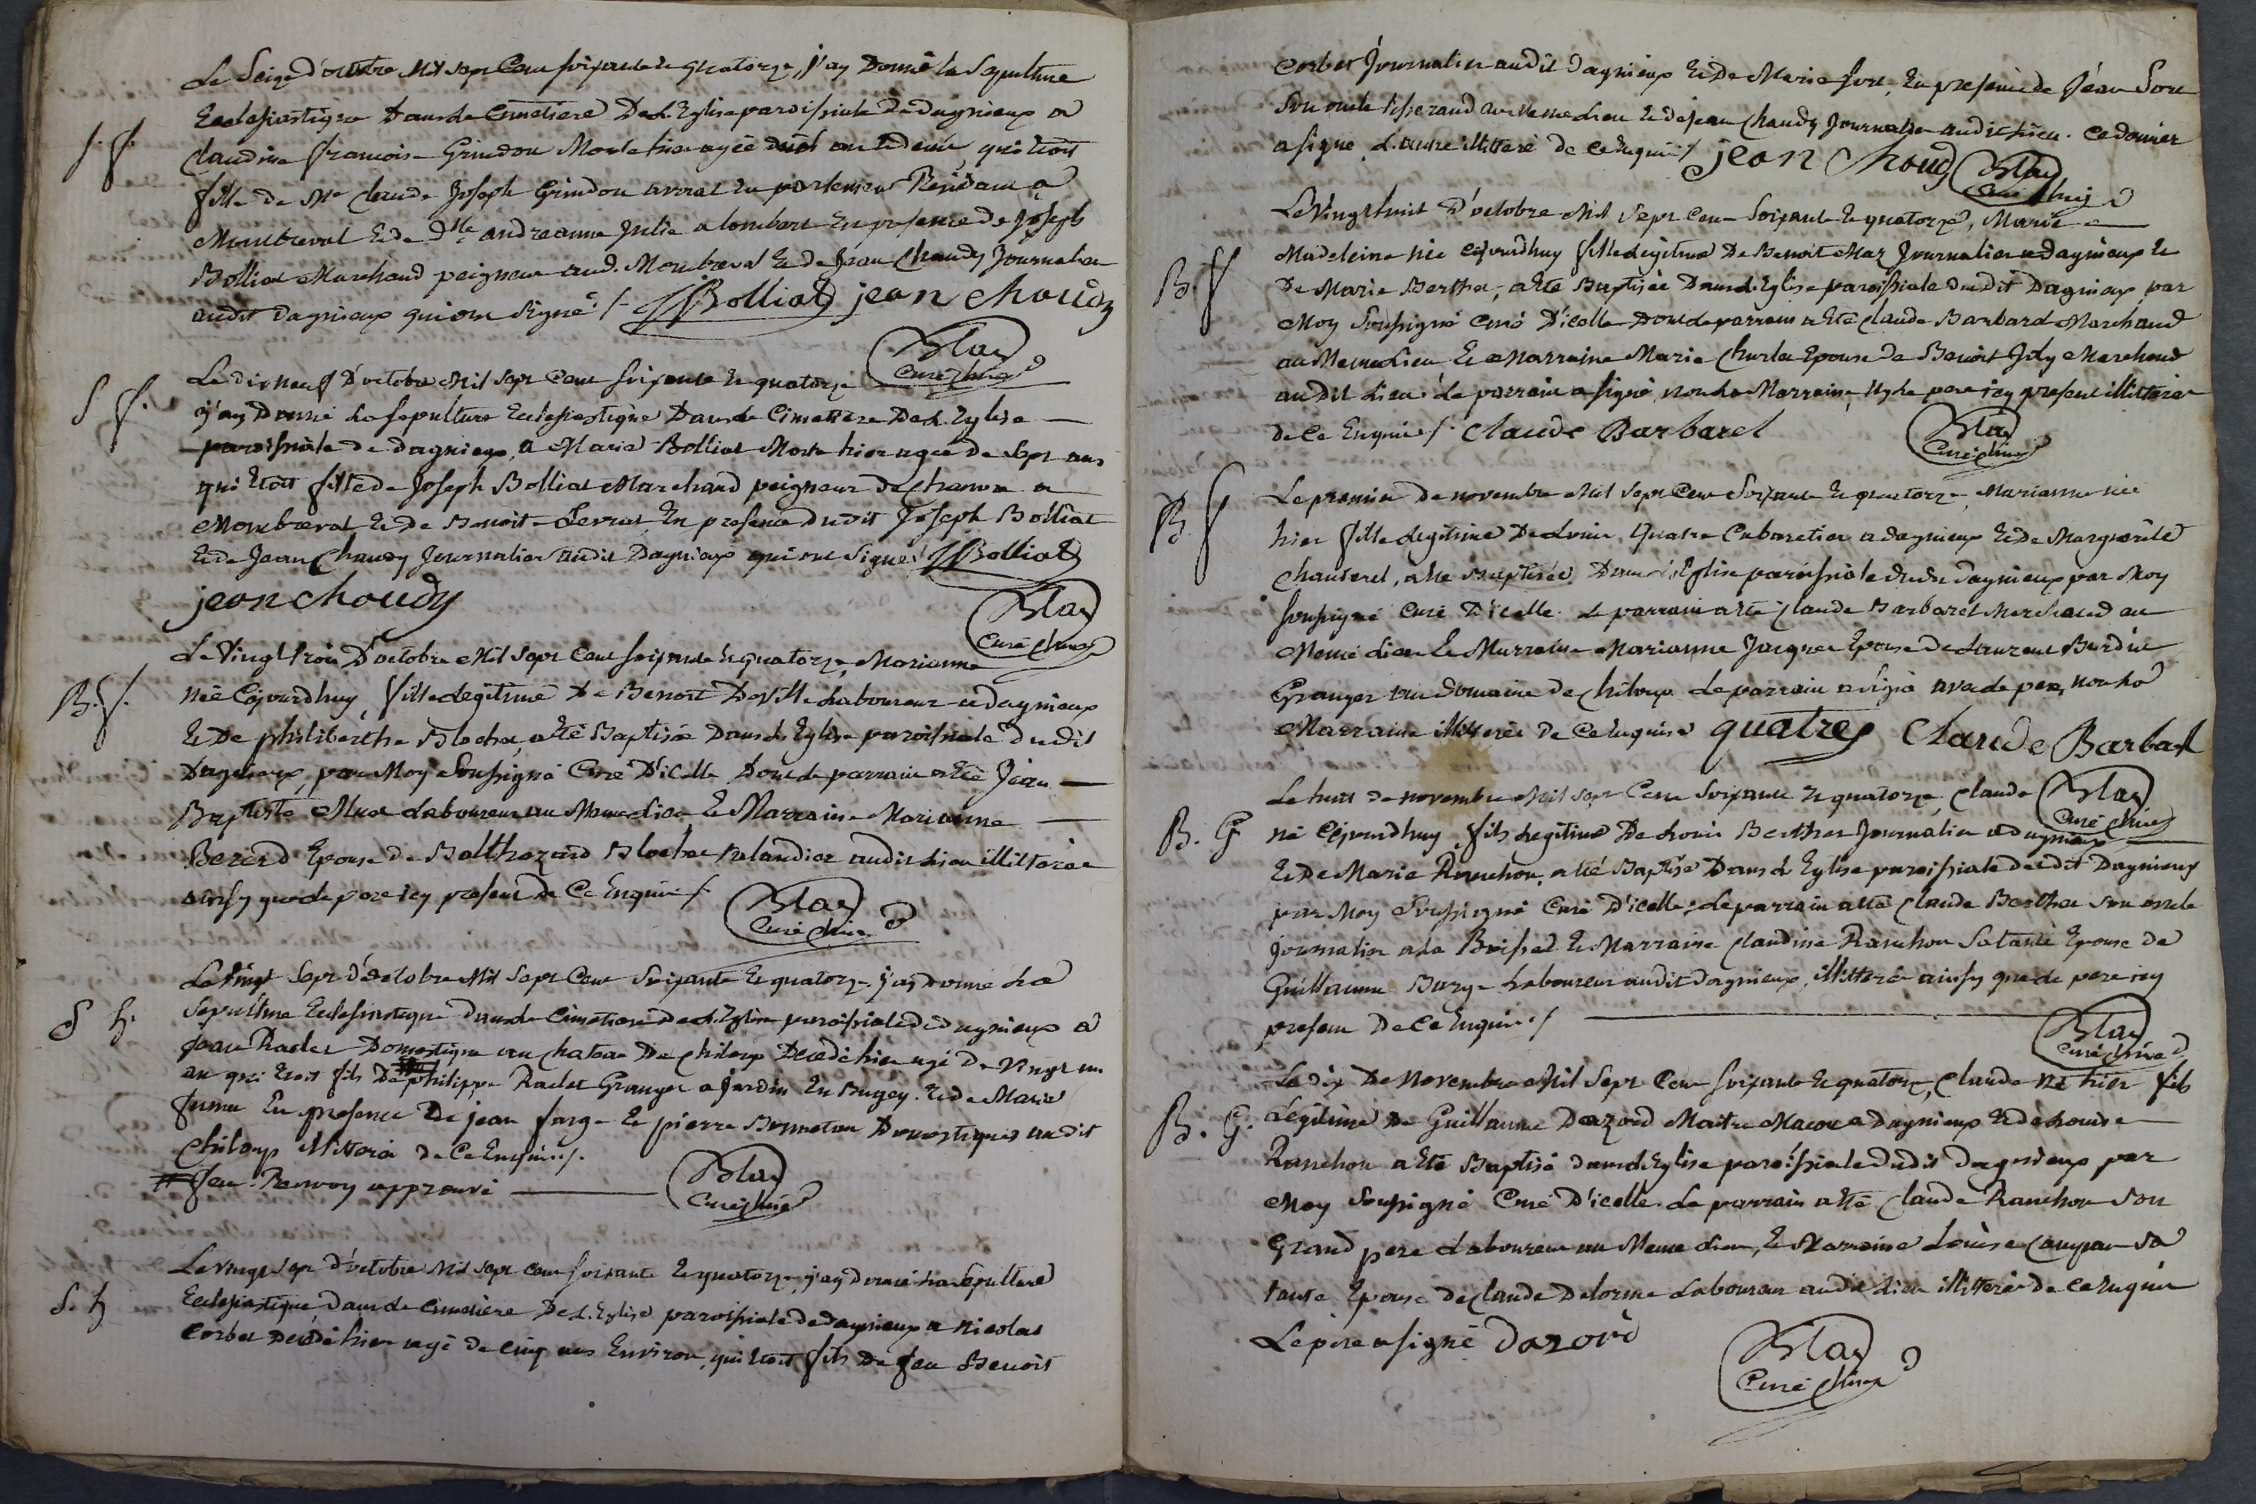 Le Seize d'octobre Mil Sept Cent Soixante et quatorze, j'ay Donné la Sepulture
Ecclesiastique Dans le Cimetiere De L'Eglise paroissiale de dagnieux a
S. f.
Claudine françoise Grindon Morte hier agée d'un an et demi, qui étoit
fille de Me Claude Joseph Grindon avocat en parlement Résidant a
Montluel et de Dlle andreanne Julie a lombert En presence de Joseph
Bolliat Marchand peigneur aud. Montluel et de Jean Chaudy Journalier
audit dagnieux qui ont Signé /. JBolliat jean choudy
Blay
Curé
Le dix neuf D'octobre Mil Sept Cent Soixante et quatorze
S f.
j'ay Donné la Sepulture Ecclesiastique Dans le Cimetiere De L'Eglise
paroissiale de dagnieux, a Marie Bolliat Morte hier agée De Sept ans
qui Etoit fille de Joseph Bolliat Marchand peigneur de Chanvre a
Montluel et de Benoite En presence dudit Joseph Bolliat
et de Jean Chaudy Journalier audit Dagnieux qui ont Signés JBolliat
jean choudy
Blay
Curé
Le Vingt trois D'octobre Mil Sept Cent Soixante et quatorze, Marianne
B. f.
née Cejourdhuy, fille legitime De Benoit Deville Laboureur a dagnieux
Et De philiberthe Blochet, a été Baptisée Dans L'Eglise paroissiale dudit
Dagnieux, par Moy Soussigné Curé D'icelle, Dont le parrain a été Jean
Baptiste Laboureur au Meme Lieu et Marraine Marianne
Berard Epouse de Balthazard Blochet audit Lieu illitterée
ainsy que le pere icy present De Ce Enquis /.
Blay
Curé
Le Vingt Sept d'octobre Mil Sept Cent Soixante Et quatorze j'ay Donné La
S h.
Sepulture Ecclesiastique Dans le Cimetiere De L'Eglise paroissiale de dagnieux a
Jean Raclet Domestique au Chateau De Chiloup Decedé hier agé De Vingt un
an qui Etoit fils De philippe Raclet Granger a Jardin En Bugey. et de Marie
En presence De jean farge Et pierre Bonneton Domestiques audit
Chiloup illitterés De Ce Enquis /.
# feu Renvoy approuvé
Blay
Curé
Le Vingt Sept d'octobre Mil Sept Cent Soixante Et quatorze, j'ay Donné La Sepulture
S. h
Ecclesiastique dans le Cimetiere De L'Eglise paroissiale de dagnieux a Nicolas
Corbet Decedé hier agé de Cinq ans Environ, qui Etoit fils De feu Benoit
Corbet Journalier audit dagnieux Et De Marie fort, En presence de Jean fort
Son oncle tisserand au Meme Lieu et de Jean Chaudy Journalier audit Lieu. Ce dernier
a Signé L'autre illitteré de Ce Enquis /. jean choudy
Blay
Curé
Le Vingt huit D'octobre Mil Sept Cent Soixante Et quatorze, Marie
B. f
Madeleine née Cejourdhuy fille Legitime De Benoit Journalier a Dagnieux Et
De Marie Berthet, a été Baptisée Dans L'Eglise paroissiale dudit Dagnieux par
Moy Soussigné Curé D'icelle Dont le parrain a été Claude Barbard Marchand
au Meme Lieu, Et Marraine Marie Epouse de Benoit Joly Marchand
audit Lieu. Le parrain a signé, non La Marraine Ny le pere icy present illitteré
de Ce Enquis /. Claude Barbarel
Blay
Curé
Le premier de novembre Mil Sept Cent Soixante Et quatorze, Marianne née
B. f
hier fille legitime De Louis Quatre Cabaretier a dagnieux Et De Marguerite
a été Baptisée Dans L'Eglise paroissiale dudit dagnieux par Moy
soussigné Curé D'icelle. Le parrain a été Claude Barbaret Marchand au
Meme Lieu Et Marraine Marianne Epouse De Laurent
Granger au Domaine de Chiloup. Le parrain a signé avec le pere, non La
Marraine illitterée De Ce Enquise quatre Claude Barbarel
Blay
Curé
Le huit de novembre Mil Sept Cent Soixante Et quatorze, Claude
B. G
né Cejourdhuy fils legitime De Louis Berthet Journalier a dagnieux
Et De Marie Ranchon, a été Baptisé Dans L'Eglise paroissiale dudit Dagnieux
par Moy Soussigné Curé D'icelle; Le parrain a été Claude Berthet Son oncle
journalier a La Boisse Et Marraine Claudine Ranchon Sa tante Epouse de
Guillaume Laboureur audit dagnieux, illitterés ainsy que le pere icy
present De Ce Enquis /.
Blay
Curé
Le dix De Novembre Mil Sept Cent Soixante Et quatorze, Claude né hier fils
B. G.
Legitime De Guillaume Dazord Maitre Maçon a Dagnieux Et de Louise
Ranchon a été Baptisé dans L'Eglise paroissiale dudit dagnieux par
Moy Soussigné Curé D'icelle. Le parrain a été Claude Ranchon Son
Grand pere Laboureur au Meme Lieu, Et Marraine Louise Sa
tante Epouse de Claude Delorme Laboureur audit Lieu illitterés de Ce Enquis
Le pere a signé Dazord
Blay
Curé